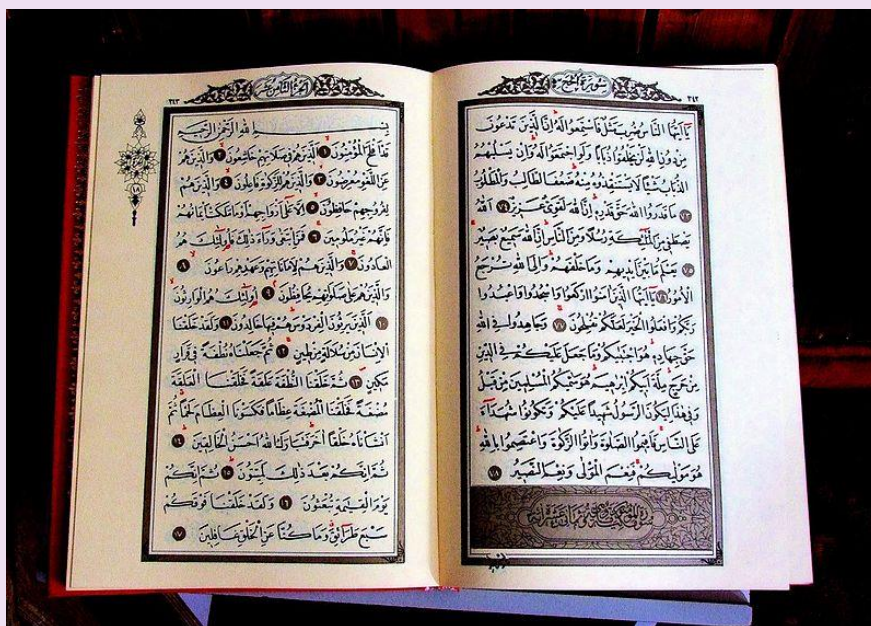 سورة الحج
٣٤٢
يَا أَيُّهَا النَّاسُ ضُرِبَ مَثَلٌ فَاسْتَمِعُوا لَهُ إِنَّ الَّذِينَ تَدْعُونَ
مِنْ دُونِ اللهِ لَنْ يَخْلُقُوا ذُبَابًا وَلَوِ اجْتَمَعُوا لَهُ وَإِنْ يَسْلُبْهُمُ
الذُّبَابُ شَيْئًا لَا يَسْتَنْقِذُوهُ مِنْهُ ضَعُفَ الطَّالِبُ وَالْمَطْلُوبُ
٧٣ مَا قَدَرُوا اللهَ حَقَّ قَدْرِهِ إِنَّ اللهَ لَقَوِيٌّ عَزِيزٌ ٧٤ اَللهُ
يَصْطَفِي مِنَ الْمَلٰئِكَةِ رُسُلًا وَمِنَ النَّاسِ إِنَّ اللهَ سَمِيعٌ بَصِيرٌ
٧٥ يَعْلَمُ مَا بَيْنَ أَيْدِيهِمْ وَمَا خَلْفَهُمْ وَإِلَى اللهِ تُرْجَعُ
الْأُمُورُ ٧٦ يَا أَيُّهَا الَّذِينَ آمَنُوا ارْكَعُوا وَاسْجُدُوا وَاعْبُدُوا
رَبَّكُمْ وَافْعَلُوا الْخَيْرَ لَعَلَّكُمْ تُفْلِحُونَ ٧٧ وَجَاهِدُوا فِي اللهِ
حَقَّ جِهَادِهِ هُوَ اجْتَبٰيكُمْ وَمَا جَعَلَ عَلَيْكُمْ فِي الدِّينِ
مِنْ حَرَجٍ مِلَّةَ أَبِيكُمْ إِبْرٰهِيمَ هُوَ سَمّٰيكُمُ الْمُسْلِمِينَ مِنْ قَبْلُ
وَفِي هٰذَا لِيَكُونَ الرَّسُولُ شَهِيدًا عَلَيْكُمْ وَتَكُونُوا شُهَدَاءَ
عَلَى النَّاسِ فَأَقِيمُوا الصَّلٰوةَ وَآتُوا الزَّكٰوةَ وَاعْتَصِمُوا بِاللهِ
هُوَ مَوْلٰيكُمْ فَنِعْمَ الْمَوْلٰى وَنِعْمَ النَّصِيرُ ٧٨
الجزء الثامن عشر
٣٤٣
بِسْمِ اللهِ الرَّحْمٰنِ الرَّحِيمِ
قَدْ أَفْلَحَ الْمُؤْمِنُونَ ١ اَلَّذِينَ هُمْ فِي صَلَاتِهِمْ خَاشِعُونَ ٢ وَالَّذِينَ هُمْ
عَنِ اللَّغْوِ مُعْرِضُونَ ٣ وَالَّذِينَ هُمْ لِلزَّكٰوةِ فَاعِلُونَ ٤ وَالَّذِينَ هُمْ
لِفُرُوجِهِمْ حَافِظُونَ ٥ إِلَّا عَلَى أَزْوَاجِهِمْ أَوْ مَا مَلَكَتْ أَيْمَانُهُمْ
فَإِنَّهُمْ غَيْرُ مَلُومِينَ ٦ فَمَنِ ابْتَغَى وَرَاءَ ذٰلِكَ فَأُولٰئِكَ هُمُ
الْعَادُونَ ٧ وَالَّذِينَ هُمْ لِأَمَانَاتِهِمْ وَعَهْدِهِمْ رَاعُونَ ٨
وَالَّذِينَ هُمْ عَلَى صَلَوَاتِهِمْ يُحَافِظُونَ ٩ أُولٰئِكَ هُمُ الْوَارِثُونَ
١٠ اَلَّذِينَ يَرِثُونَ الْفِرْدَوْسَ هُمْ فِيهَا خَالِدُونَ ١١ وَلَقَدْ خَلَقْنَا
الْإِنْسَانَ مِنْ سُلَالَةٍ مِنْ طِينٍ ١٢ ثُمَّ جَعَلْنَاهُ نُطْفَةً فِي قَرَارٍ
مَكِينٍ ١٣ ثُمَّ خَلَقْنَا النُّطْفَةَ عَلَقَةً فَخَلَقْنَا الْعَلَقَةَ
مُضْغَةً فَخَلَقْنَا الْمُضْغَةَ عِظَامًا فَكَسَوْنَا الْعِظَامَ لَحْمًا ثُمَّ
أَنْشَأْنَاهُ خَلْقًا آخَرَ فَتَبَارَكَ اللهُ أَحْسَنُ الْخَالِقِينَ ١٤
ثُمَّ إِنَّكُمْ بَعْدَ ذٰلِكَ لَمَيِّتُونَ ١٥ ثُمَّ إِنَّكُمْ
يَوْمَ الْقِيٰمَةِ تُبْعَثُونَ ١٦ وَلَقَدْ خَلَقْنَا فَوْقَكُمْ
سَبْعَ طَرَائِقَ وَمَا كُنَّا عَنِ الْخَلْقِ غَافِلِينَ ١٧
١٨